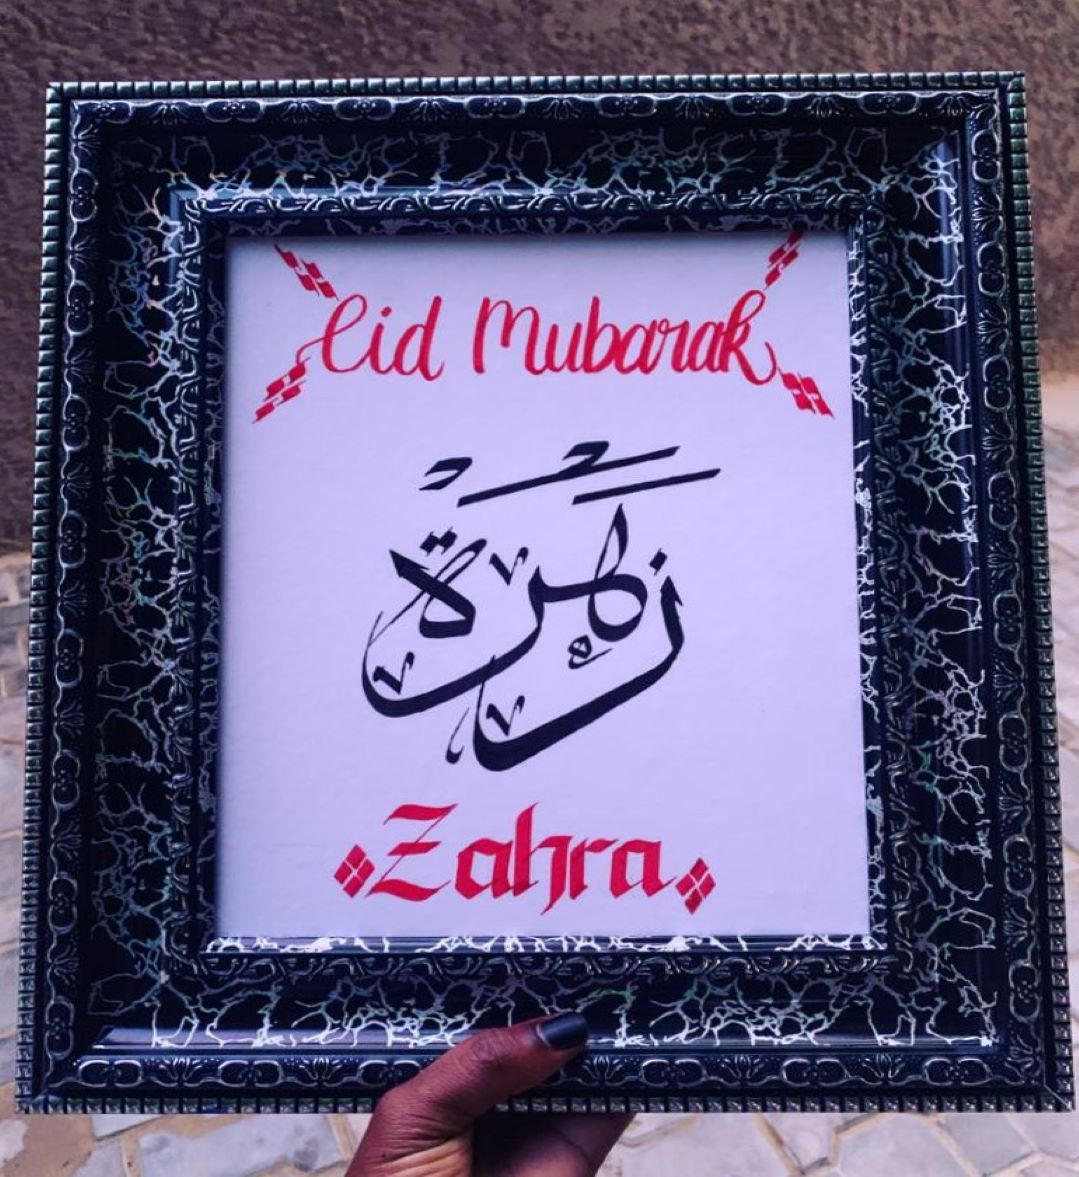 Eid Mubarak
زَهْرَة
Zahra